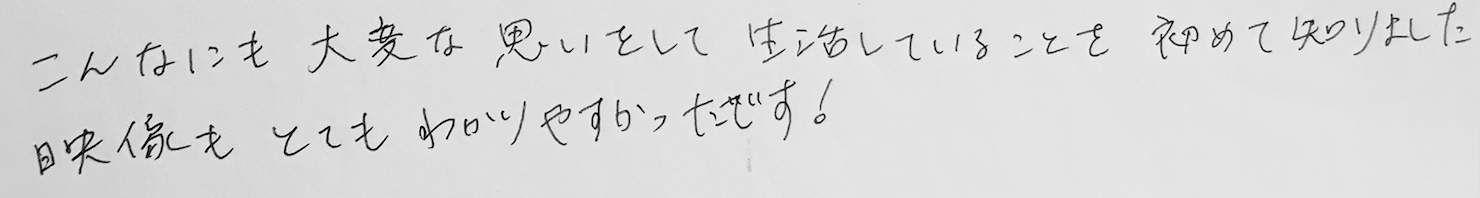 こんなにも 大変な 思いをして 生活していることを 初めて知りました
映像も とても わかりやすかったです!